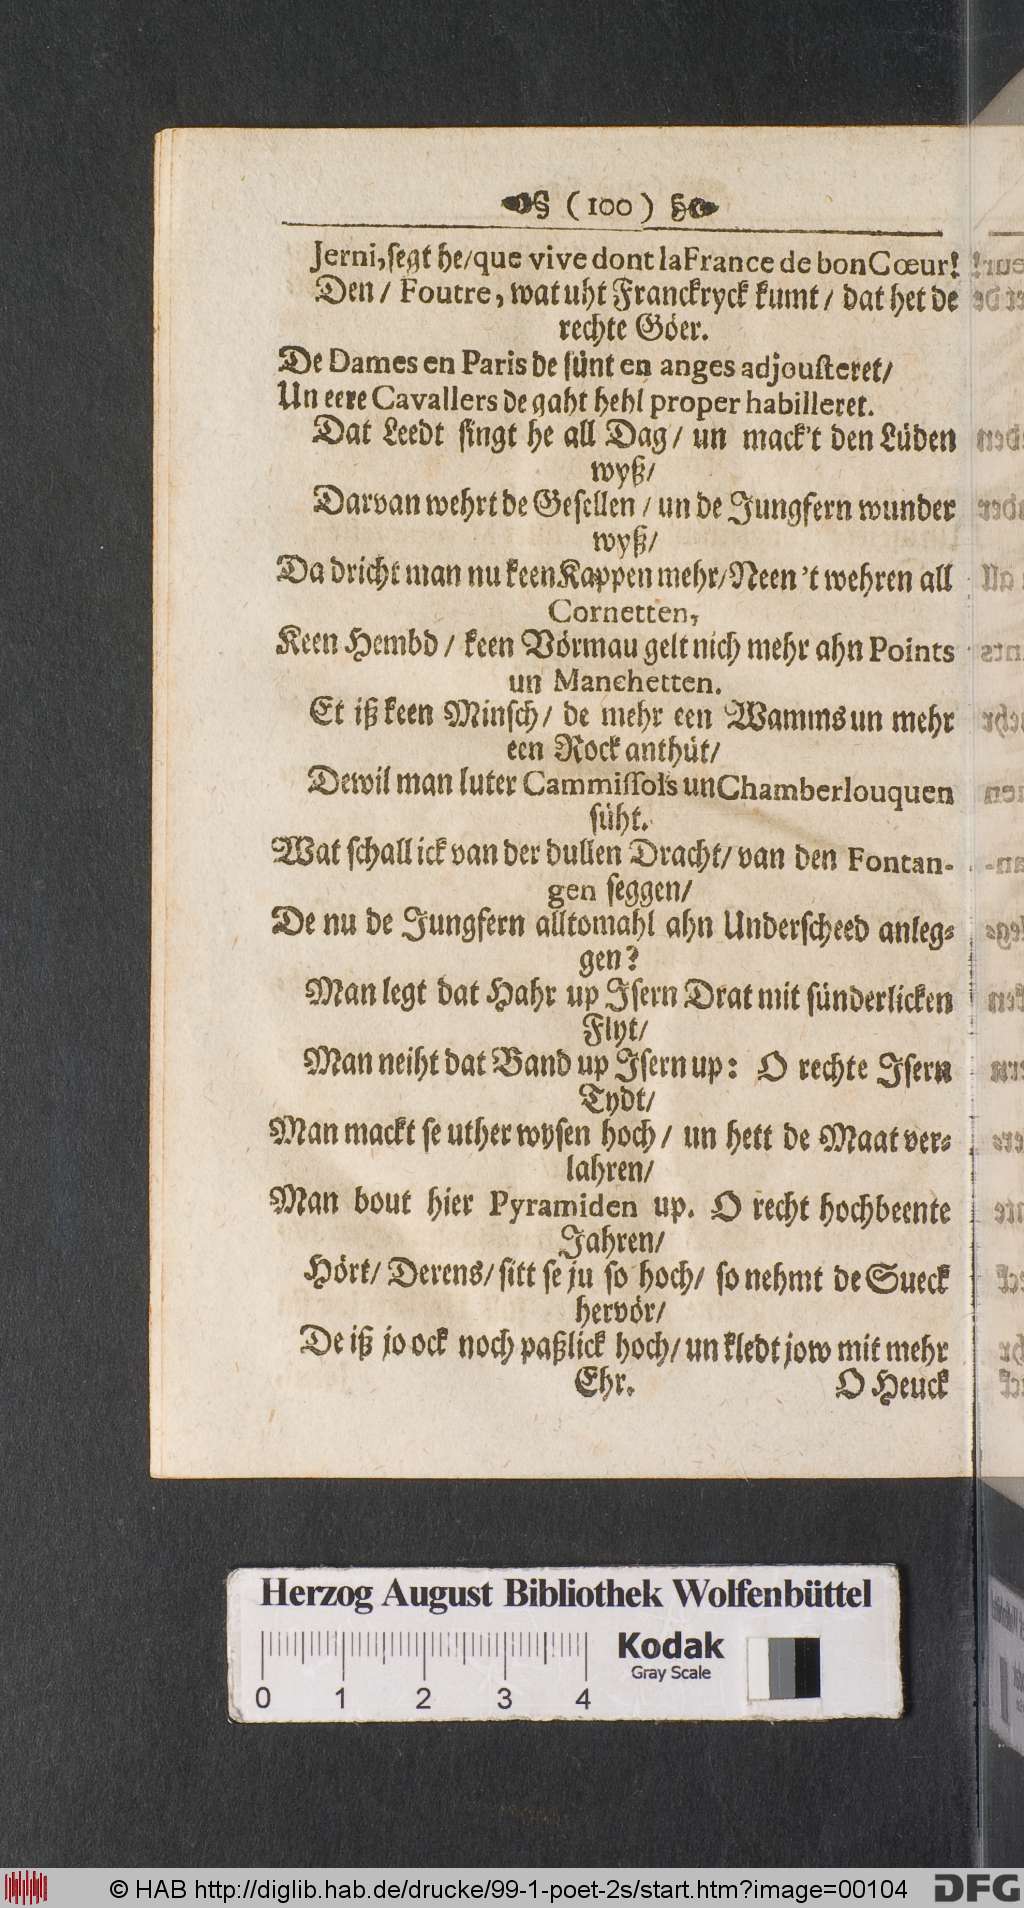 ( 100 )
Jerni, segt he/ que vive dont la France de bon Cœur!
Den/ Foutre, wat uht Franckryck kumt/ dat het de
rechte Göer.
De Dames en Paris de sünt en anges adjousteret/
Un eere Cavallers de gaht hehl proper habilleret.
Dat Leedt singt he all Dag/ un mack't den Lüden
wyß/
Darvan wehrt de Gesellen/ un de Jungfern wunder
wyß/
Da dricht man nu keen Kappen mehr/ Neen 't wehren all
Cornetten,
Keen Hembd/ keen Vörmau gelt nich mehr ahn Points
un Manchetten.
Et iß keen Minsch/ de mehr een Wamms un mehr
een Rock anthüt/
Dewil man luter Cammissols un Chamberlouquen
süht.
Wat schall ick van der dullen Dracht/ van den Fontan-
gen seggen/
De nu de Jungfern alltomahl ahn Underscheed anleg-
gen?
Man legt dat Hahr up Isern Drat mit sünderlicken
Flyt/
Man neiht dat Band up Isern up: O rechte Isern
Tydt/
Man mackt se uther wysen hoch/ un hett de Maat ver-
lahren/
Man bout hier Pyramiden up. O recht hochbeente
Jahren/
Hört/ Derens/ sitt se ju so hoch/ so nehmt de Sueck
hervör/
De iß jo ock noch paßlick hoch/ un kledt jow mit mehr
Ehr.
O Heuck
Herzog August Bibliothek Wolfenbüttel
Kodak
Gray Scale
0 1 2 3 4
© HAB http://diglib.hab.de/drucke/99-1-poet-2s/start.htm?image=00104
DFG